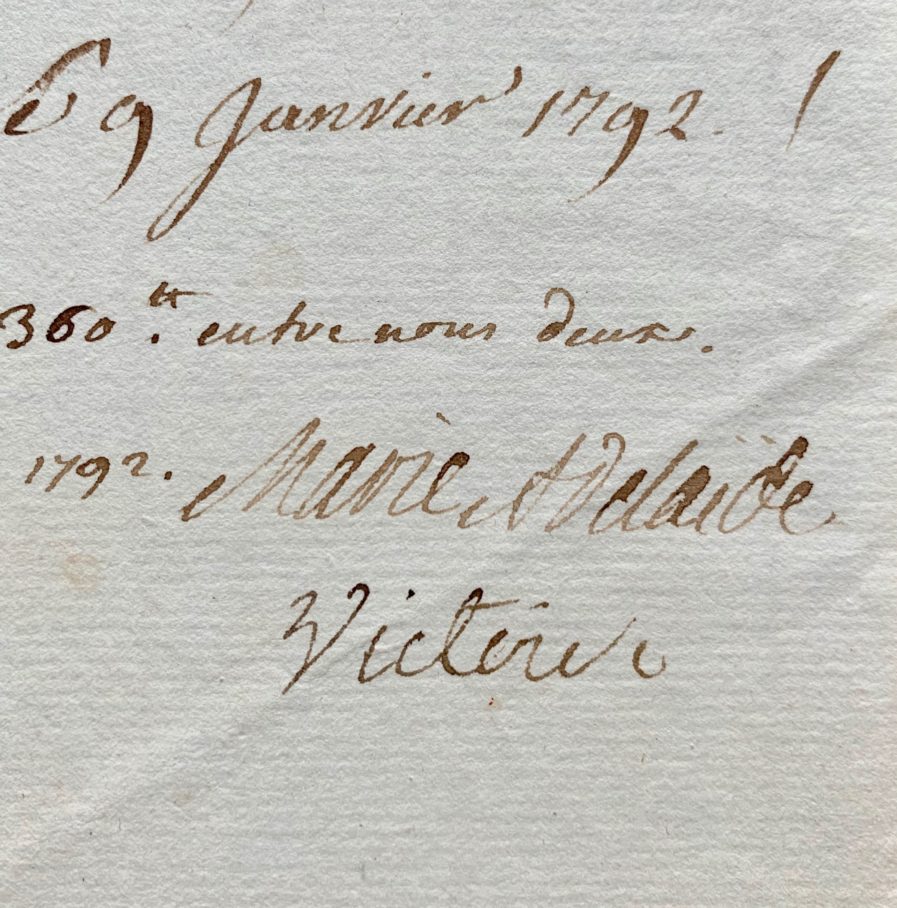 le 9 Janvier 1792.
360 ₶. entre nous deux.
1792. Marie Adelaïde
Victoire